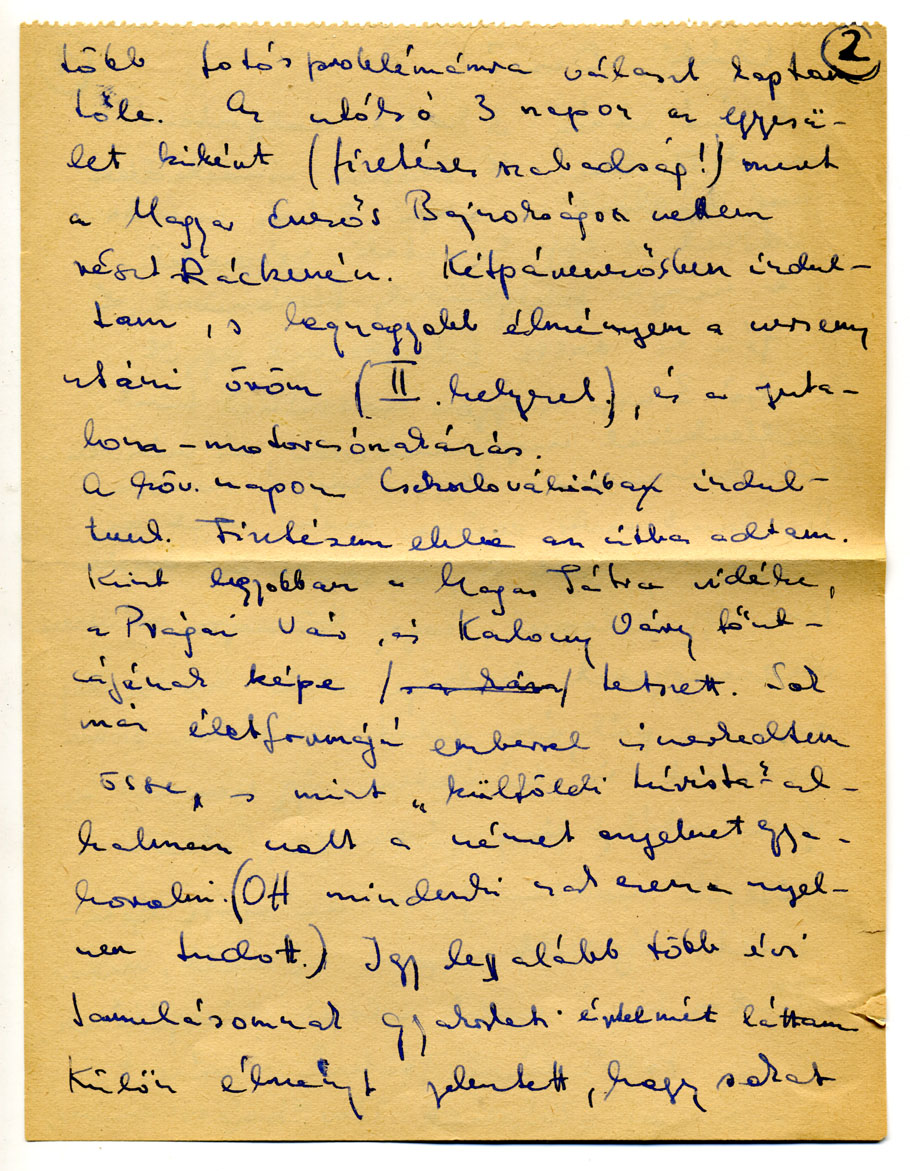 2
több fotósproblémámra választ kaptam
tőle. Az utólsó 3 napon az egyesü-
let kikért (fizetéses szabadság!) mert
a Magyar Evezős Bajnokságon vettem
részt Ráckevén. Kétpárevezősben indul-
tam, s legnagyobb élményem a verseny
utáni öröm (II. helyezet.), és a juta-
lom-motorcsónakázás.
A köv. napon Csehszlovákiába indul-
tunk. Fizetésem ebbe az útba adtam.
Kint legjobban a Magas Tátra vidéke,
a Prágai Vár, és Karlovy Váry
képe tetszett. Sok
más életformájú emberrel ismerkedtem
össze, s mint „külföldi túrista"-al-
kalmam volt a német nyelvet gya-
korolni. (Ott mindenki csak ezen a nyel-
ven tudott.) Igy legalább több évi
tanulásomnak gyakorlati értelmét láttam
Külön élményt jelentett, hogy sokat